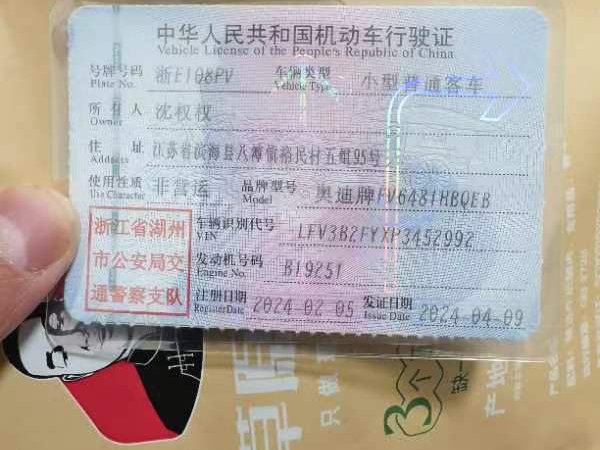 中华人民共和国机动车行驶证
Vehicle License of the People's Republic of China
号牌号码 浙E108PV 车辆类型 小型普通客车
Plate No. Vehicle Type
所有人 沈权权
Owner
住址 江苏省滨海县八滩镇裕民村五组95号
Address
使用性质 非营运 品牌型号 奥迪牌FV6481HBQEB
Use Character Model
浙江省湖州
市公安局交
通警察支队
车辆识别代号 LFV3B2FYXP3452992
VIN
发动机号码 B19251
Engine No.
注册日期 2024-02-05 发证日期 2024-04-09
Register Date Issue Date
只做
3个
产地